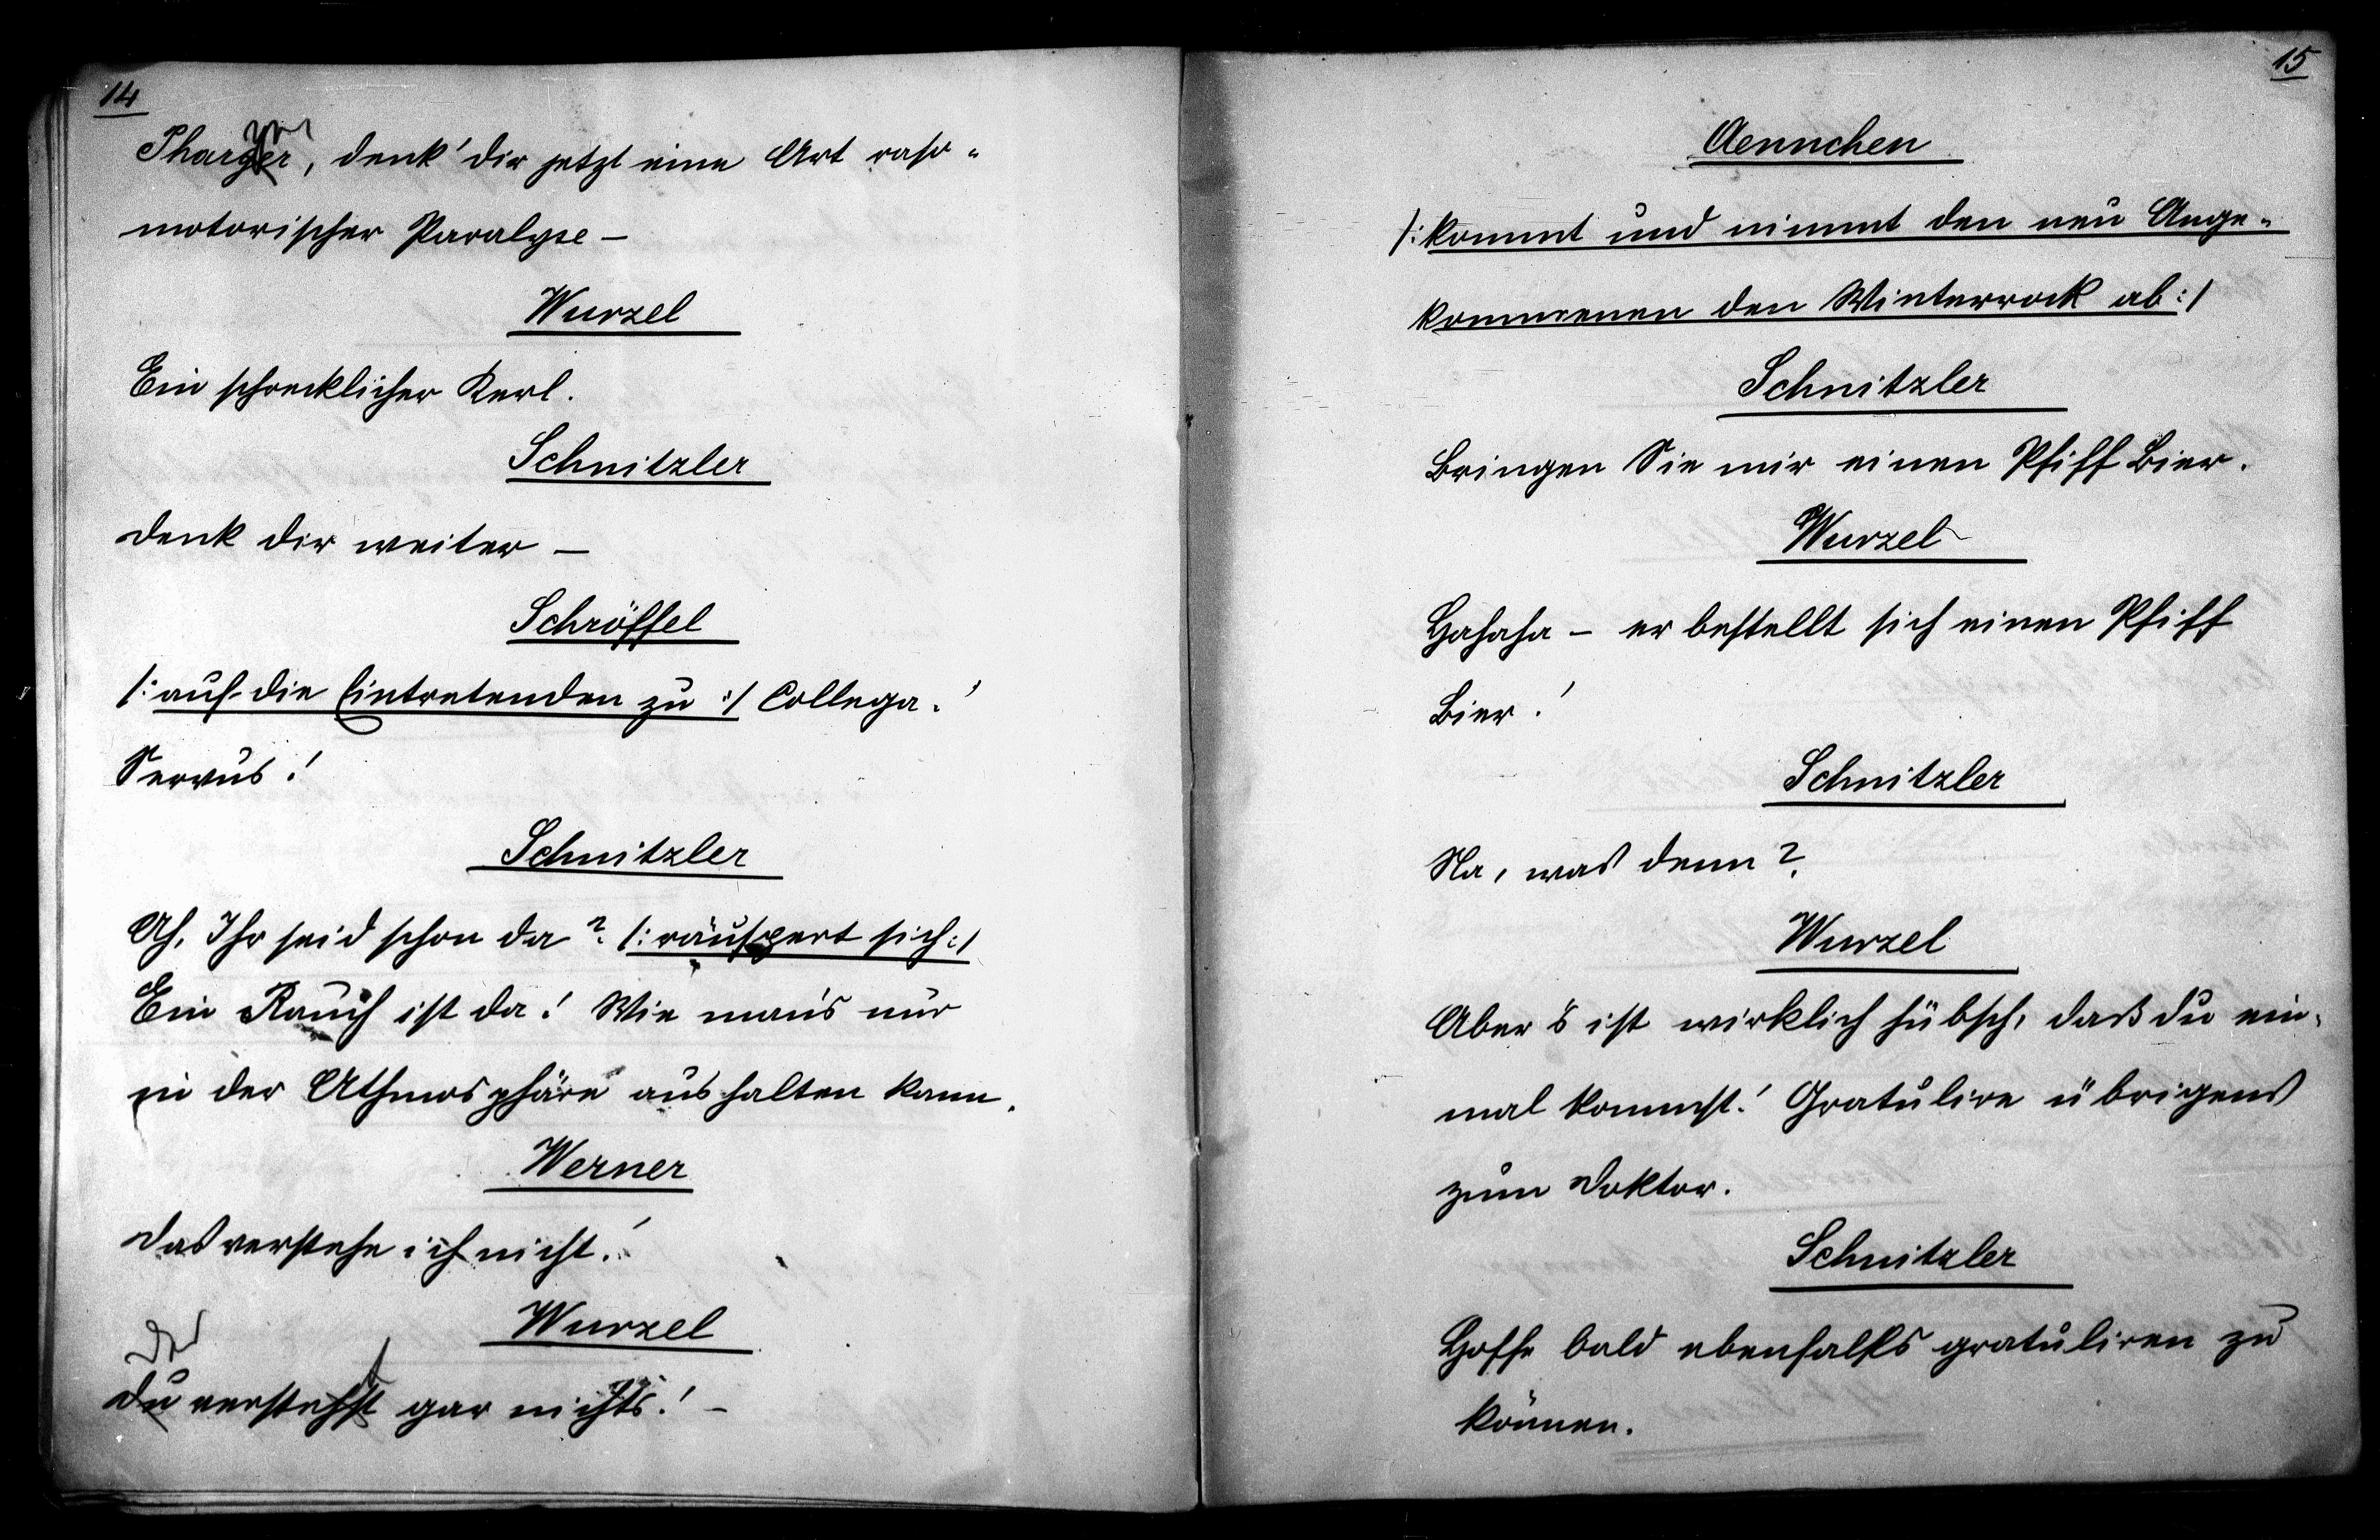 14
denk' dir jetzt eine Art vaso-
motorischer Paralyse –
Wurzel
Ein schrecklicher Kerl.
Schnitzler
Denk dir weiter –
Schröffel
/: auf die Eintretenden zu :/ Collega!
Servus!
Schnitzler
Ah, Ihr seid schon da? /: räuspert sich :/
Ein Rauch ist da! Wie man's nur
in der Athmosphäre aushalten kann.
Werner
Das verstehe ich nicht!
Wurzel
Der
Du verstehst gar nichts! –
15
Aennchen
/: kommt und nimmt den neu Ange-
kommenen den Winterrock ab :/
Schnitzler
Bringen Sie mir einen Pfiff Bier.
Wurzel
Hahaha – er bestellt sich einen Pfiff
Bier!
Schnitzler
Na, was denn?
Wurzel
Aber 's ist wirklich hübsch, daß du ein-
mal kommst! Gratulire übrigens
zum Doktor.
Schnitzler
Hoffe bald ebenfalls gratuliren zu
können.